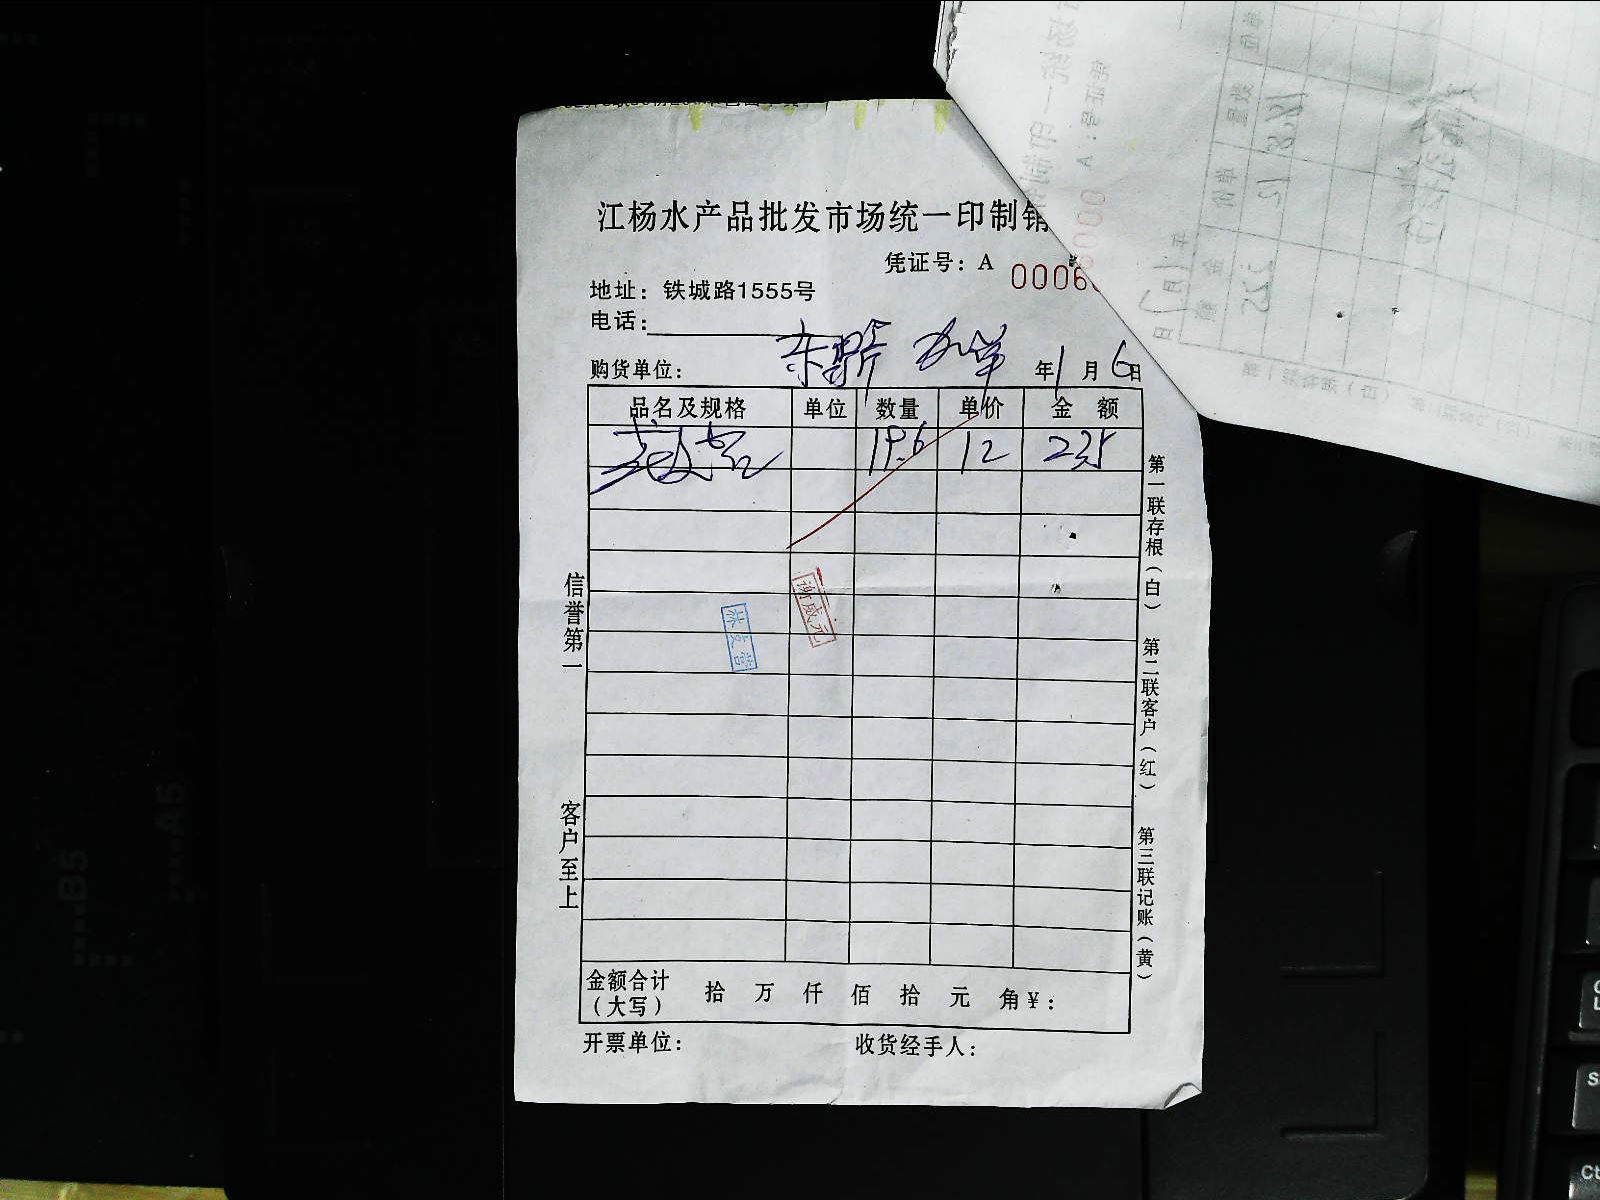 江杨水产品批发市场统一印制销
凭证号：A 0006
地址：铁城路1555号
电话：
购货单位： 年1月6日
品名及规格 单位 数量 单价 金额
19.6 12 235
信誉第一
客户至上
第一联存根（白）
第二联客户（红）
第三联记账（黄）
金额合计（大写） 拾 万 仟 佰 拾 元 角¥：
开票单位： 收货经手人：
B5
A5